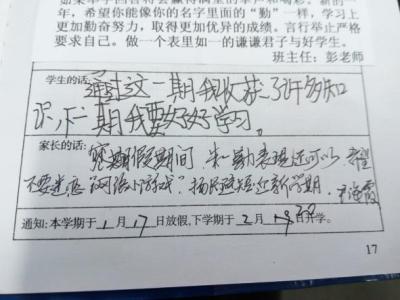 如果举手回答将会赢得满堂的掌声和喝彩。新的一
年,希望你能像你的名字里面的“勤”一样,学习上
更加勤奋努力,取得更加优异的成绩。言行举止严格
要求自己。做一个表里如一的谦谦君子与好学生。
班主任:彭老师
学生的话:通过这一期我收获了许多知
识,下一期我要好好学习。
家长的话:寒期假期间,朱一勤表现还可以 希望
不要迷恋“网络小游戏”。扬长避短迎新学期.
通知:本学期于1月17日放假,下学期于2月19 20开学。
17